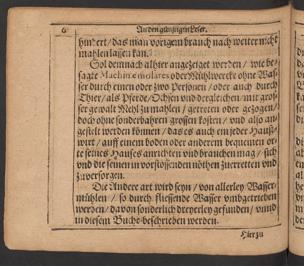 6 An den günstigen Leser.
hindert / das man vorigem brauch nach weiter nicht
mahlen lassen kan.
Sol demnach alhier angezeiget werden / wie be-
sagte Machinæ molares oder Mühlwercke ohne Was-
ser durch einen oder zwo Personen / oder auch durch
Thier / als Pferde / Ochsen und dergleichen / mit gros-
ser gewalt Mehl zu mahlen / getretten oder gezogen /
doch ohne sonderbahren grossen kosten / und also an-
gestelt werden können / das es auch ein jeder Hauß-
wirt / auff einem boden oder anderem bequemen or-
te seines Hauses anrichten und brauchen mag / sich
und die seinen in vorstossenden nöthen zuerretten und
zuversorgen.
Die Andere art wird seyn / von allerley Wasser-
mühlen / so durch fliessende Wasser umbgetrieben
werden / davon sonderlich dreyerley gefunden / unnd
in diesem Buche beschrieben werden.
Hierzu